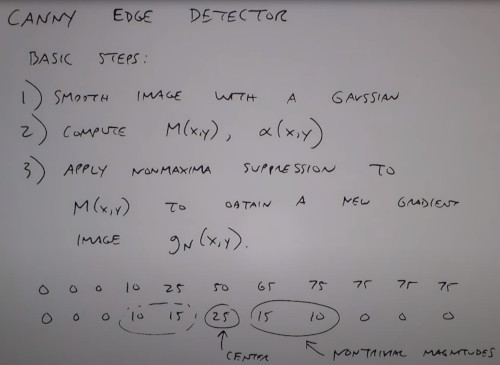 CANNY EDGE DETECTOR
BASIC STEPS:
1) SMOOTH IMAGE WITH A GAUSSIAN
2) COMPUTE M(x,y), α(x,y)
3) APPLY NONMAXIMA SUPPRESSION TO
M(x,y) TO OBTAIN A NEW GRADIENT
IMAGE gN(x,y).
0 0 0 10 25 50 65 75 75 75 75
0 0 0 10 15 25 15 10 0 0 0
CENTER NONTRIVIAL MAGNITUDES